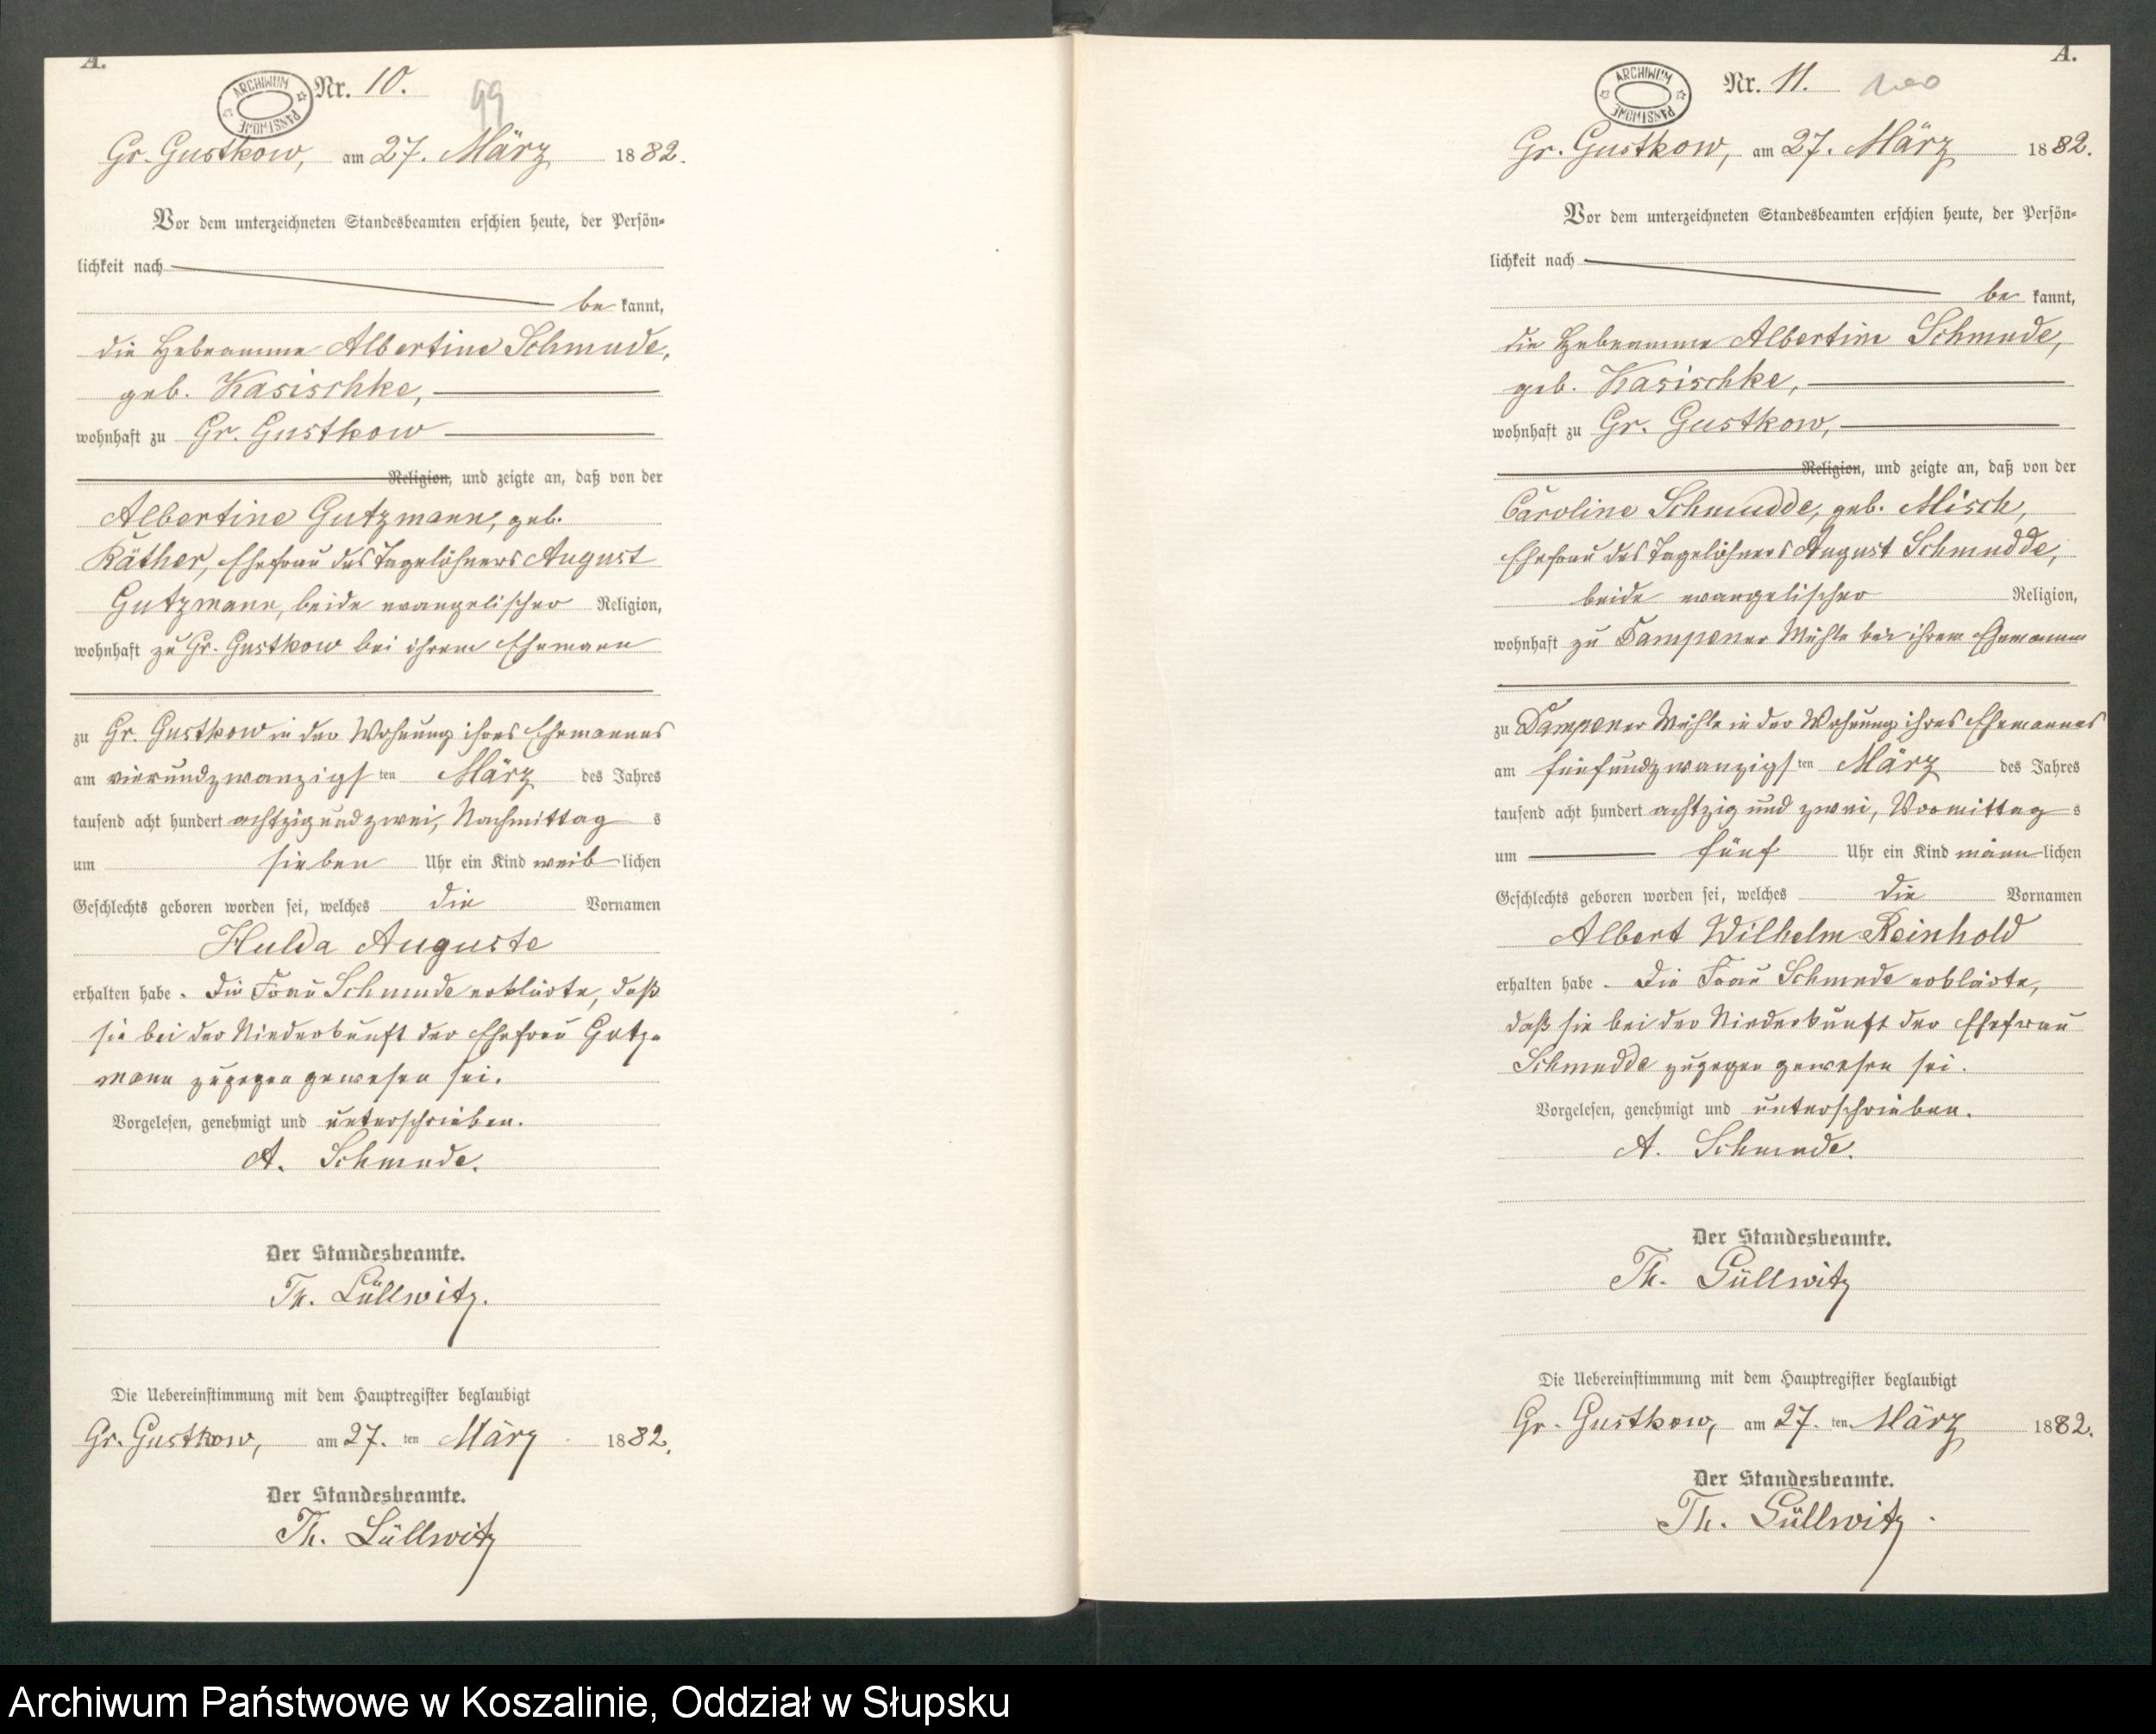 A.
ARCHIWUM PAŃSTWOWE
Nr. 10.
99
Gr. Gustkow, am 27. März 1882.
Vor dem unterzeichneten Standesbeamten erschien heute, der Persön-
lichkeit nach
be kannt,
die Hebeamme Albertine Schmude,
geb. Kasischke,
wohnhaft zu Gr. Gustkow
Religion, und zeigte an, daß von der
Albertine Gutzmann, geb.
Räther, Ehefrau des Tagelöhners August
Gutzmann, beide evangelischer Religion,
wohnhaft zu Gr. Gustkow bei ihrem Ehemann
zu Gr. Gustkow in der Wohnung ihres Ehemannes
am vierundzwanzigsten März des Jahres
tausend acht hundert achtzig und zwei, Nachmittags
um sieben Uhr ein Kind weiblichen
Geschlechts geboren worden sei, welches die Vornamen
Hulda Auguste
erhalten habe. Die Frau Schmude erklärte, daß
sie bei der Niederkunft der Ehefrau Gutz-
mann zugegen gewesen sei.
Vorgelesen, genehmigt und unterschrieben.
A. Schmude.
Der Standesbeamte.
Th. Lüllwitz.
Die Uebereinstimmung mit dem Hauptregister beglaubigt
Gr. Gustkow, am 27. ten März 1882.
Der Standesbeamte.
Th. Lüllwitz
A.
ARCHIWUM PAŃSTWOWE
Nr. 11.
100
Gr. Gustkow, am 27. März 1882.
Vor dem unterzeichneten Standesbeamten erschien heute, der Persön-
lichkeit nach
be kannt,
die Hebeamme Albertine Schmude,
geb. Kasischke,
wohnhaft zu Gr. Gustkow,
Religion, und zeigte an, daß von der
Caroline Schmudde, geb. Misch,
Ehefrau des Tagelöhners August Schmudde,
beide evangelischer Religion,
wohnhaft zu Dampener Mühle bei ihrem Ehemann
zu Dampener Mühle in der Wohnung ihres Ehemannes
am fünfundzwanzigsten März des Jahres
tausend acht hundert achtzig und zwei, Vormittags
um fünf Uhr ein Kind männlichen
Geschlechts geboren worden sei, welches die Vornamen
Albert Wilhelm Reinhold
erhalten habe. Die Frau Schmude erklärte,
daß sie bei der Niederkunft der Ehefrau
Schmudde zugegen gewesen sei.
Vorgelesen, genehmigt und unterschrieben.
A. Schmude.
Der Standesbeamte.
Th. Lüllwitz
Die Uebereinstimmung mit dem Hauptregister beglaubigt
Gr. Gustkow, am 27. ten März 1882.
Der Standesbeamte.
Th. Lüllwitz.
Archiwum Państwowe w Koszalinie, Oddział w Słupsku